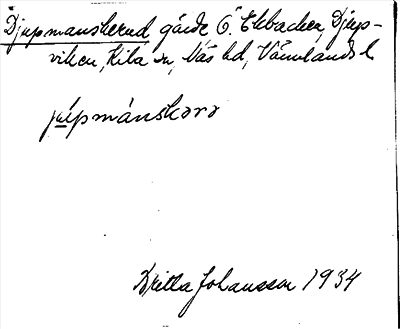 Djupmanskerud gärde, Ö. Ekbacken, Djup-
viken, Kila sn, Näs hd, Värmlands l.
jùpmánskərə
Britta Johansson 1934